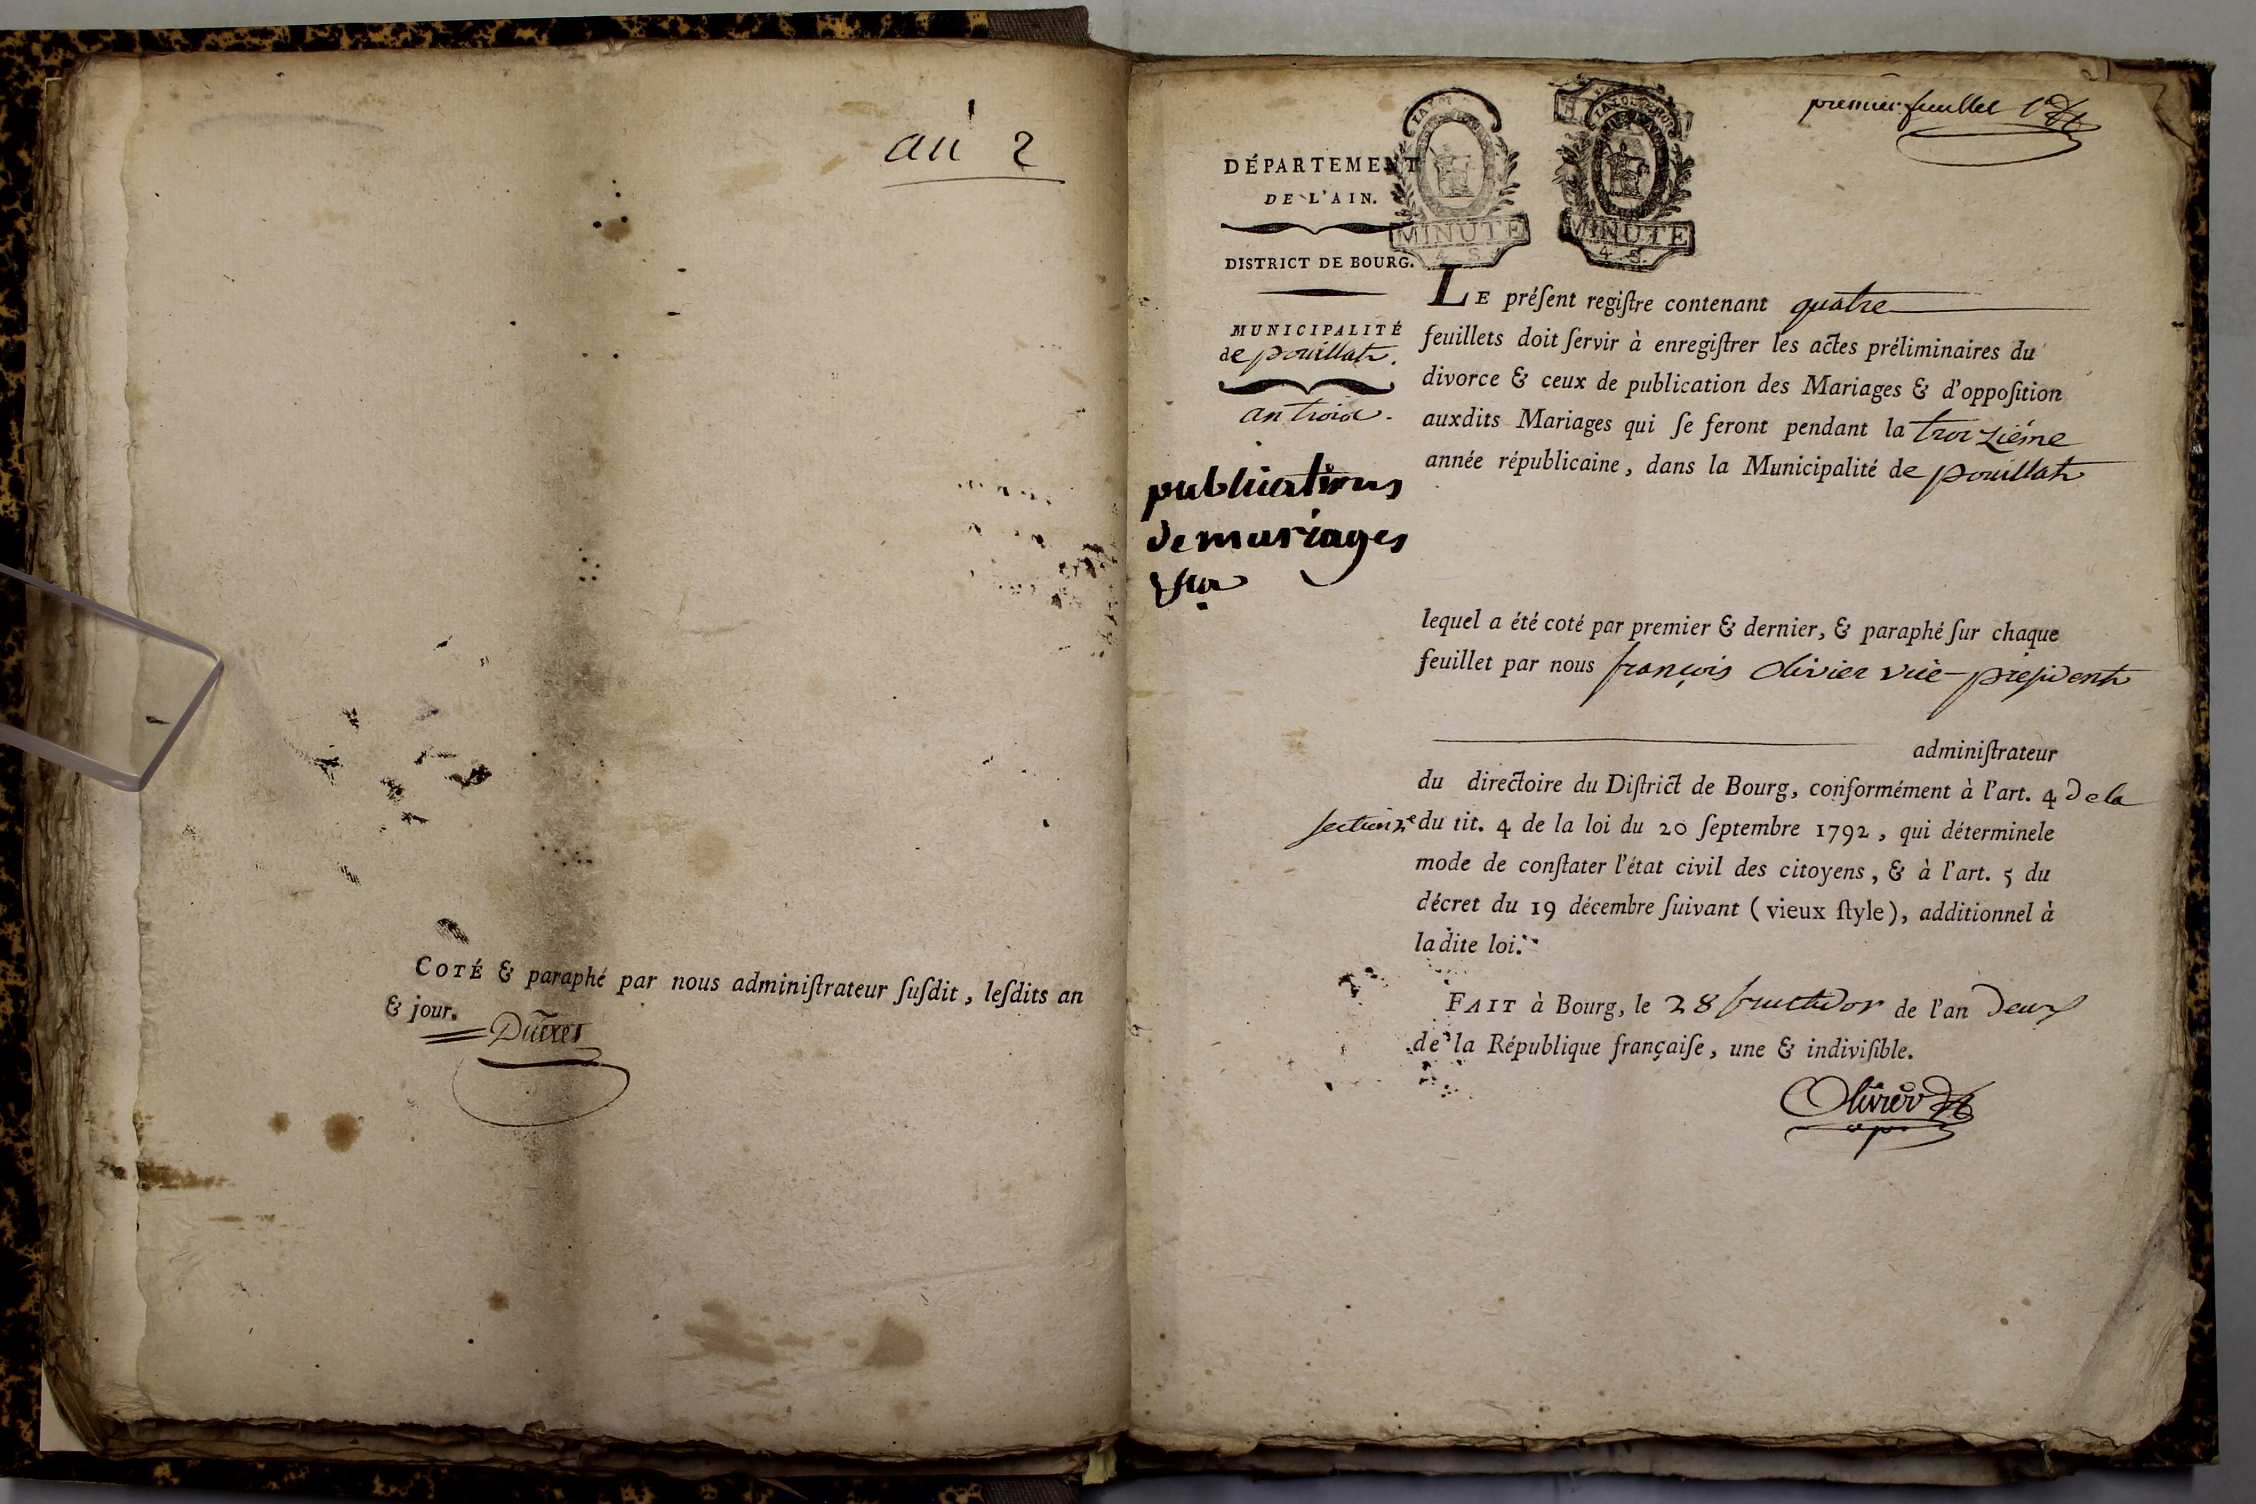 an 2
COTÉ & paraphé par nous adminiſtrateur ſuſdit, leſdits an
& jour.
premier feuillet
DÉPARTEMENT
DE L'AIN.
DISTRICT DE BOURG.
MUNICIPALITÉ
de pouillat.
an trois
publications
de mariages
MINUTE
4 S.
MINUTE
4 S.
LE préſent regiſtre contenant quatre
feuillets doit ſervir à enregiſtrer les actes préliminaires du
divorce & ceux de publication des Mariages & d'oppoſition
auxdits Mariages qui ſe feront pendant la troiziéme
année républicaine, dans la Municipalité de pouillat
lequel a été coté par premier & dernier, & paraphé ſur chaque
feuillet par nous françois olivier vice-preſident
adminiſtrateur
du directoire du Diſtrict de Bourg, conformément à l'art. 4 de la
section 2e du tit. 4 de la loi du 20 ſeptembre 1792, qui déterminele
mode de conſtater l'état civil des citoyens, & à l'art. 5 du
décret du 19 décembre ſuivant (vieux ſtyle), additionnel à
ladite loi.
FAIT à Bourg, le 28 fructidor de l'an deux
de la République françaiſe, une & indiviſible.
Olivier